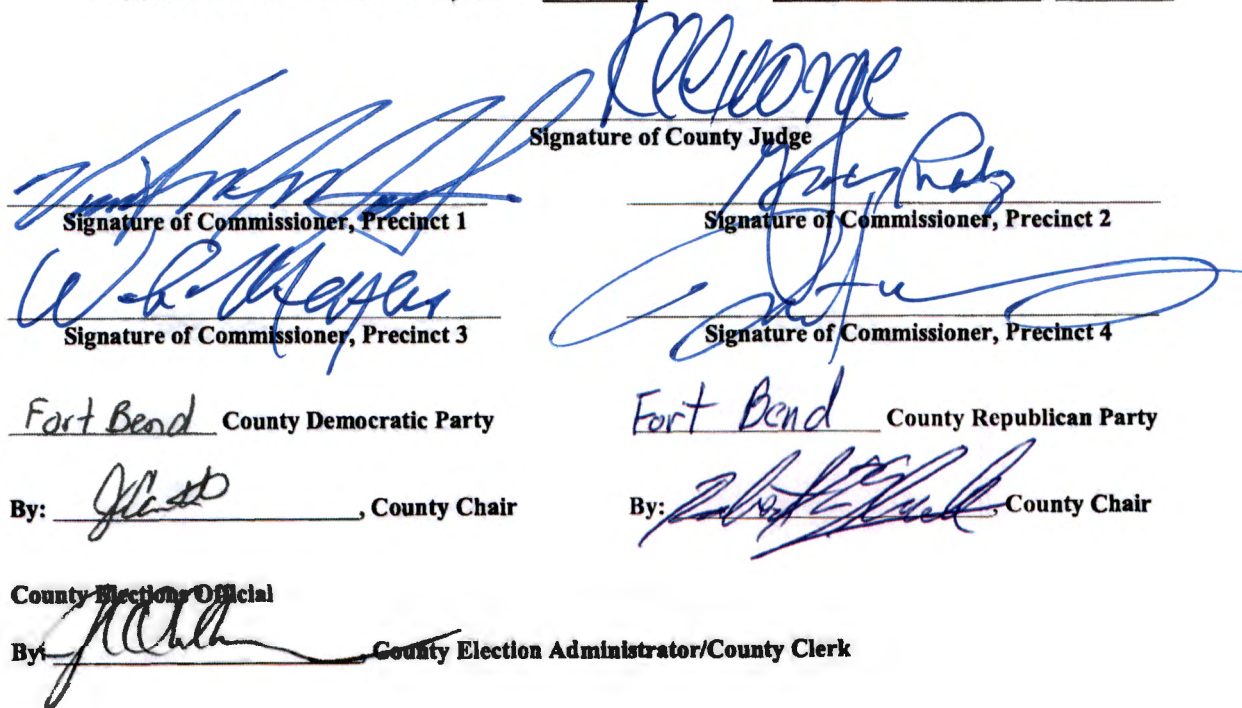 KPGeorge
Signature of County Judge
Signature of Commissioner, Precinct 1
Signature of Commissioner, Precinct 2
Signature of Commissioner, Precinct 3
Signature of Commissioner, Precinct 4
Fort Bend County Democratic Party
Fort Bend County Republican Party
By: , County Chair
By: , County Chair
County Elections Official
By: , County Election Administrator/County Clerk